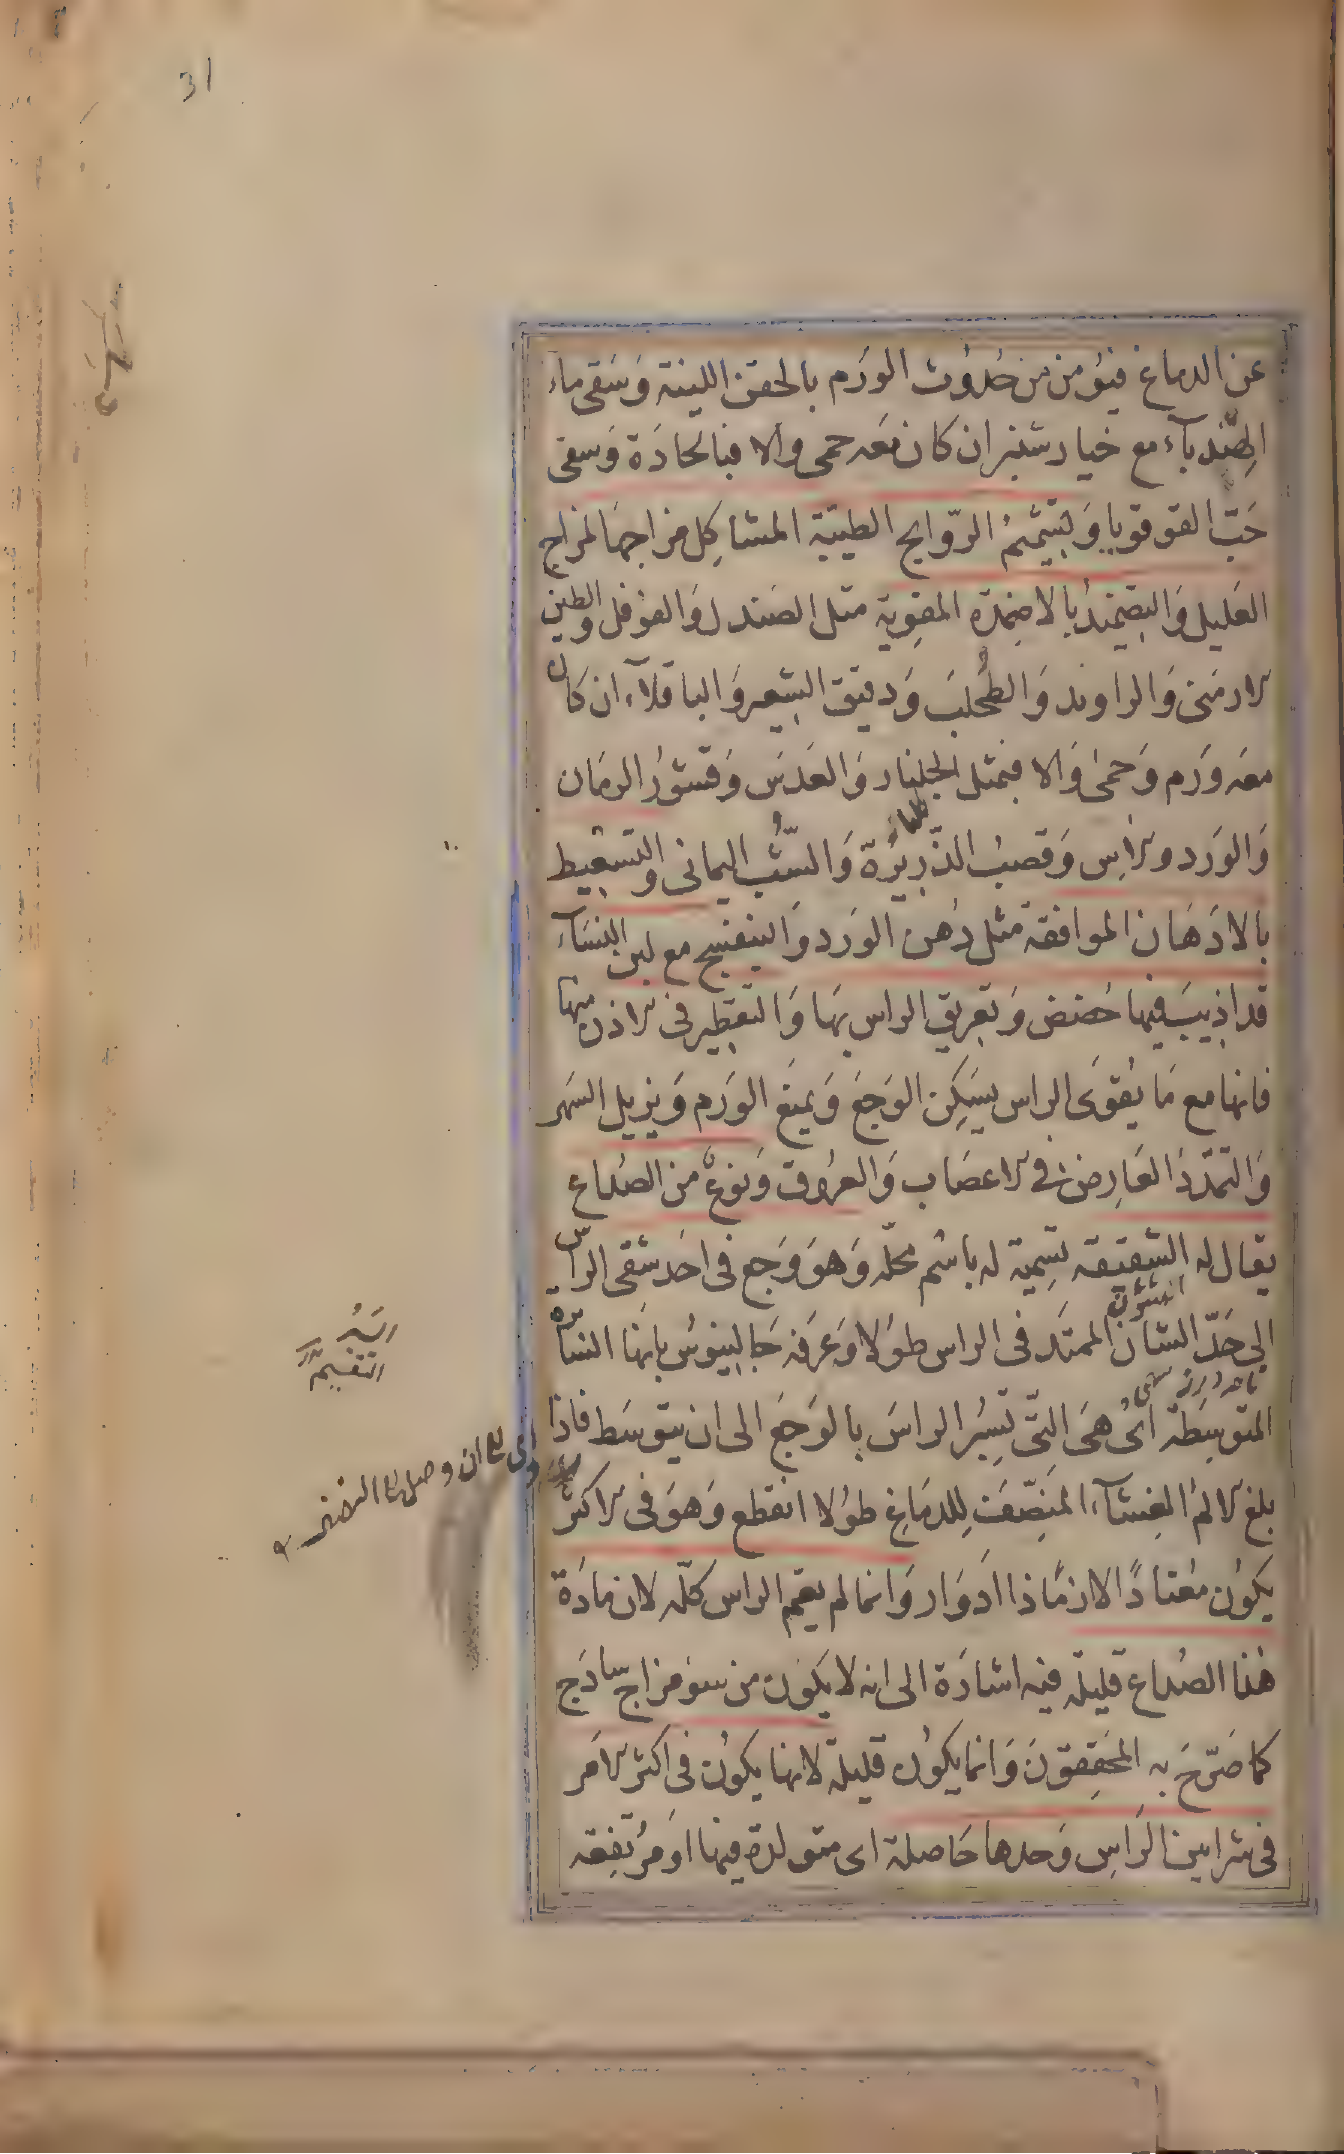 31
عن الدماغ فيؤمن من حُدُوث الورَم بالحقن اللينة وَسَقى ماء
الهِنْدباء مع خيار شنبر ان كان معَه حمى والا فبالحادَة وَسقى
حَبّ القوقويا وَبتشميْم الرّوايح الطيّبة المشاكِل مزاجهَا لمزاج
العَليل وَالتضمْيد بالاضِمدَة المقوِية مثل الصَندل وَالفوفل والطين
الارمَنى وَالراوند وَالطُحلبَ وَدقيق الشعير وَالباقلآء ان كان
معَه ورَم وَحمىٰ وَالا فبمثل الجلنار وَالعَدس وَقشوُر الرمَان
وَالورَد والاس وَقصبُ الذّريرَة وَالشّب اليمانى والتسعيط
بالادَهَان الموافقة مثل دُهن الورَد وَالبنفسج مع لبن النسَآء
قد اذيبَ فيها حُضض وَتعريق الراس بهَا وَالتقطير فى الاذن منها
فانها مع مَا يُقوَى الراس يسَكِن الوَجَع وَيمنَع الورَم وَيزيل السَهر
وَالتمَدّدَ العَارِض فى الاعصَاب وَالعرُوق وَنوعٌ من الصُداع
يقال له الشقيقه تسِميَة له باسْم محَلّه وَهوَ وَجع فى احَد شقى الراس
الى حَدّ الشان الممتَد فى الراس طوُلا وَعَرفه جَالينوسُ بانهَا الساترة
المتوسِطَة اىْ هىَ التى تسِتُر الراسَ بالوَجَع الى ان يتوسَط فاذا
بلغ الالمُ الغِشآء المنَصّف لِلدمَاغ طوُلا انقطع وَهوَ فى الاكثر
يكوُن مُعتادًا لازمًا ذا ادوَار وَانما لم يعم الراس كلّه لان مادَة
هٰذا الصُداع قليلة فيه اشارَة الى انه لا يكوُن من سوُ مزاج سَاذج
كما صَرّحَ به المحَقِقوُنَ وَانما يكوُن قليلة لانها يكوُن فى اكثر الامَر
فى شرايين الرَاس وَحدها حَاصلة اى متولدة فيها اوَ مُرتفِعَة